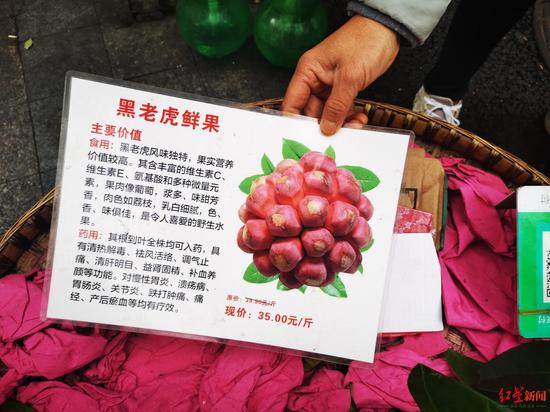 黑老虎鲜果
主要价值
食用：黑老虎风味独特，果实营养
价值较高。其含丰富的维生素C、
维生素E、氨基酸和多种微量元
素，果肉像葡萄，浆多、味甜芳
香，肉色如荔枝，乳白细腻，色、
香、味俱佳，是令人喜爱的野生水
果。
药用：其根到叶全株均可入药，具
有清热解毒、祛风活络、调气止
痛、清肝明目、益肾固精、补血养
颜等功能。对慢性胃炎、溃疡病、
胃肠炎、关节炎、跌打肿痛、痛
经、产后瘀血等均有疗效。
原价：
现价：35.00元/斤
红星新闻